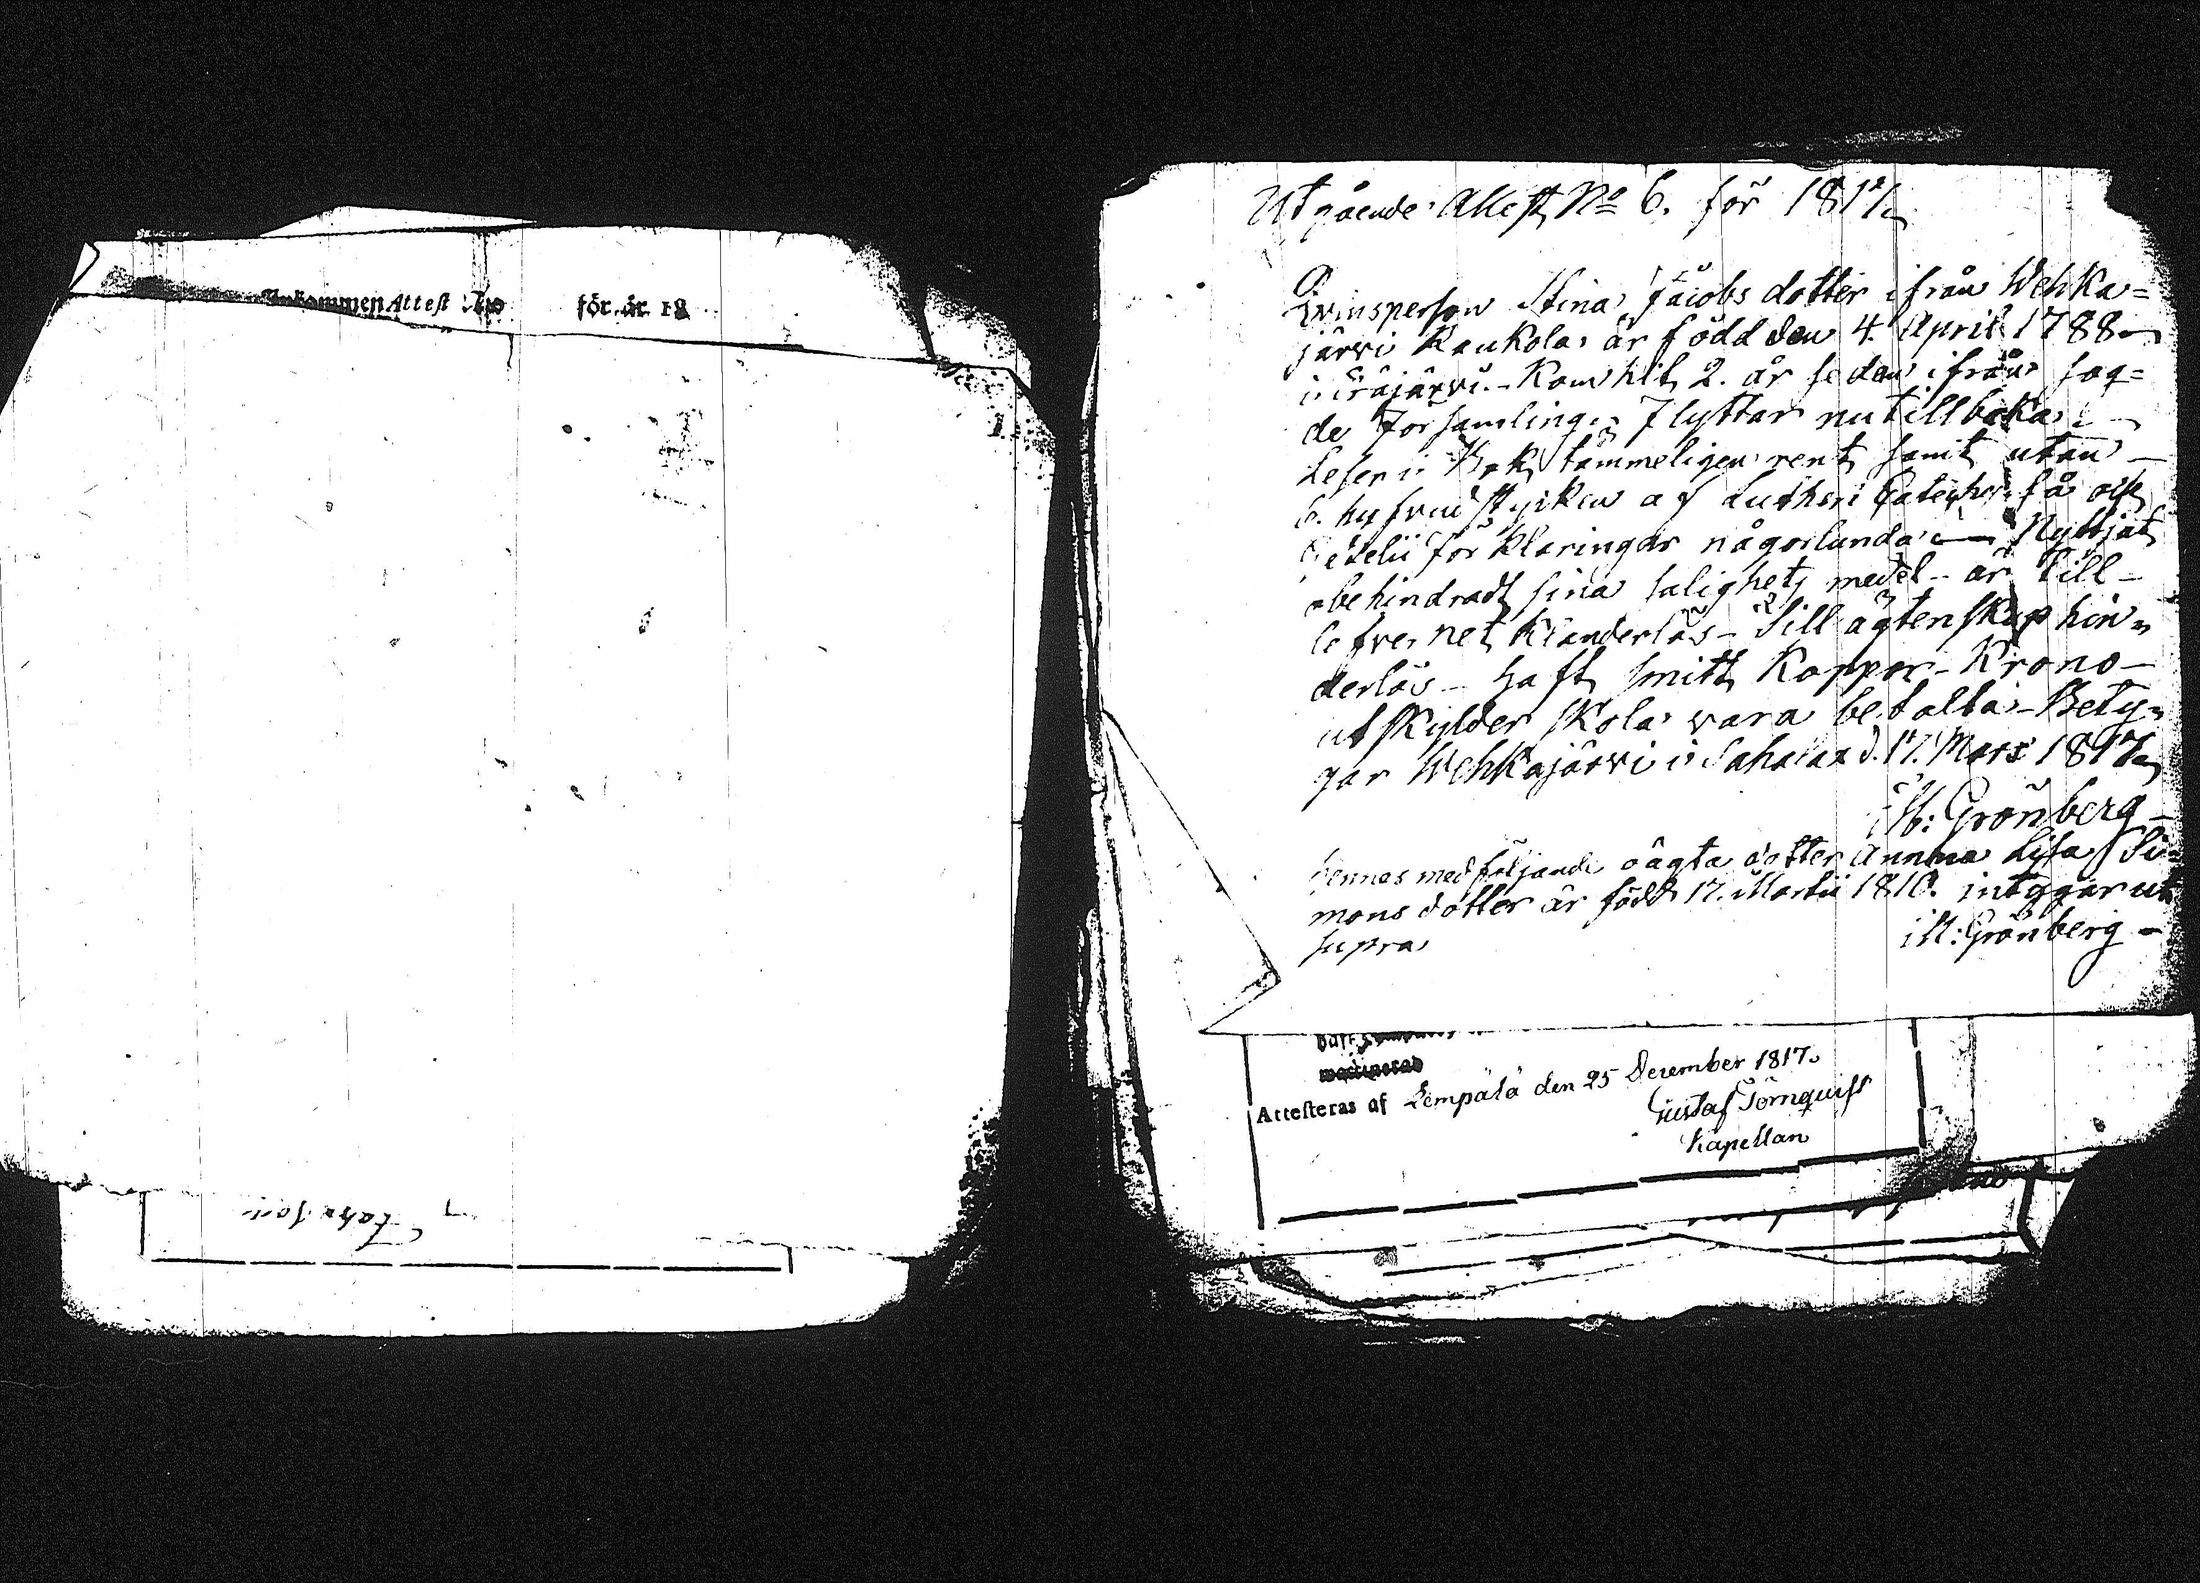 Inkommen Attest No för år 18
Utgående Attest No 6. för 1817.
Qwinsperson Stina Jacobs dotter ifrån Wehka=
järvi Kaukola är född den 4. April 1788
i Eräjärvi. - Kom hit 2. år sedan ifrån sag=
de Församling. Flyttar nu tillbaka. -
Läser i Bok tämmeligen rent samt utan -
hufvudstycken af Lutheri Cateches så ock
förklaringar någorlunda - Nyttjat
obehindradt sina salighets medel - är till
lefvernet klanderlös - Till ägtenskap hin=
derlös - haft smitt Koppor - Krono-
utskylder skola vara betalta - Bety=
gar Wehkajärvi i Sahalax d. 17. Mars 1817.
M: Grönberg
Hennes medföljande oägta dotter Anna Lisa Si=
mons dotter är född 17. Martii 1810. intygar ut
supra
M: Grönberg -
Attesteras af Lempälä den 25 December 1817.
Gustaf Törnquist
Kapellan